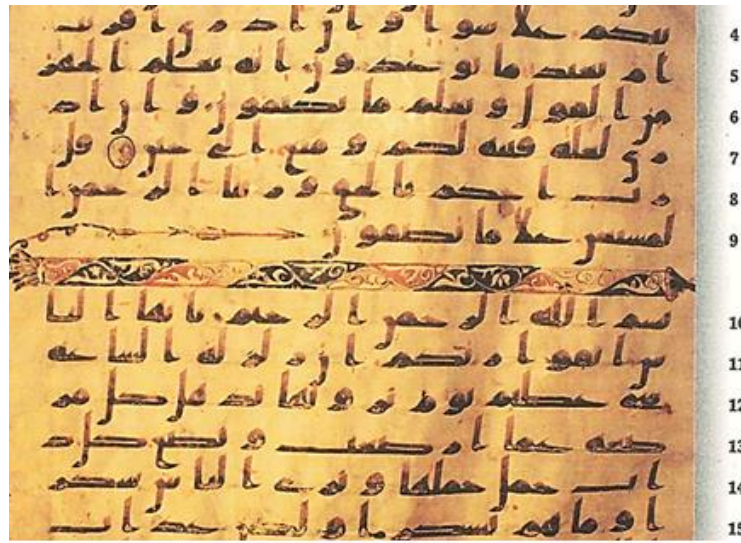 نتكم علا سوا وان ادري اقريب 4
ام بعيد ما توعدون انه يعلم الجهر 5
من القول ويعلم ما تكتمون وان اد 6
ري لعله فتنه لكم ومتع الى حين قل 7
رب احكم بالحق وربنا الرحمن ا 8
لمستعن علا ما تصفون 9
بسم الله الرحمن الرحيم يايها النا 10
س اتقوا ربكم ان زلزله الساعه 11
شي عظيم يوم ترونها تذهل كل مر 12
ضعه عما ارضعت وتضع كل ذ 13
ات حمل حملها وترى الناس سكر 14
ى وما هم بسكرى ولكن عذاب 15